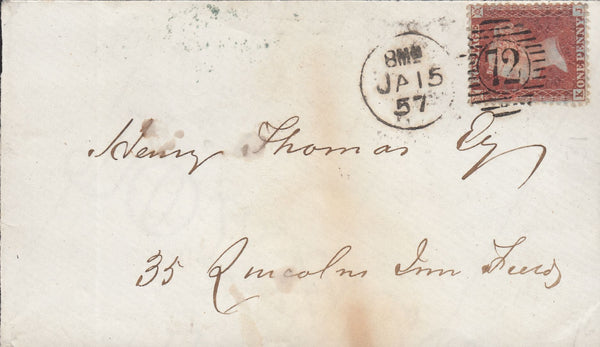 8MG
JA 15
57
72
ONE PENNY
K
Henry Thomas Esq
35 Lincolns Inn Fields